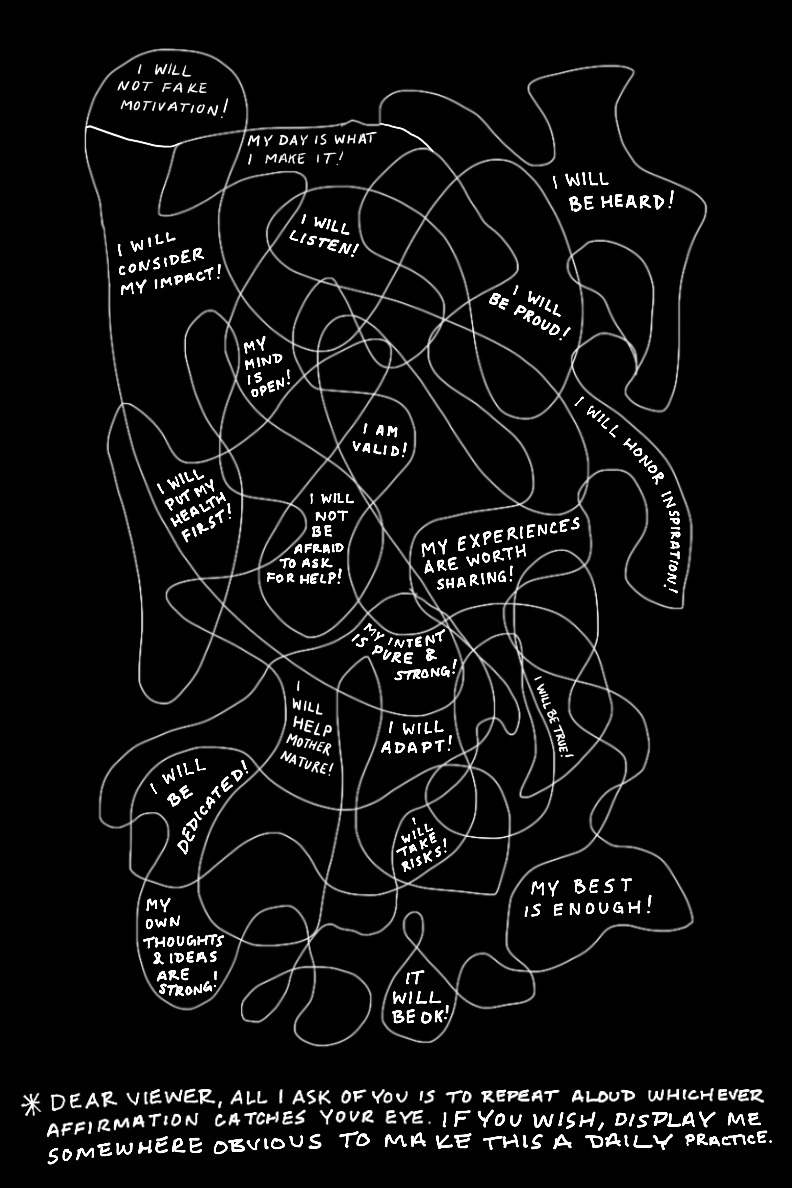 I WILL
NOT FAKE
MOTIVATION!
MY DAY IS WHAT
I MAKE IT!
I WILL
BE HEARD!
I WILL
LISTEN!
I WILL
CONSIDER
MY IMPACT!
I WILL
BE PROUD!
MY
MIND
IS
OPEN!
I WILL HONOR INSPIRATION!
I AM
VALID!
I WILL
PUT MY
HEALTH
FIRST!
I WILL
NOT
BE
AFRAID
TO ASK
FOR HELP!
MY EXPERIENCES
ARE WORTH
SHARING!
MY INTENT
IS PURE &
STRONG!
I
WILL
HELP
MOTHER
NATURE!
I WILL
ADAPT!
I WILL BE TRUE!
I WILL
BE
DEDICATED!
I
WILL
TAKE
RISKS!
MY BEST
IS ENOUGH!
MY
OWN
THOUGHTS
& IDEAS
ARE
STRONG!
IT
WILL
BE OK!
* DEAR VIEWER, ALL I ASK OF YOU IS TO REPEAT ALOUD WHICHEVER
AFFIRMATION CATCHES YOUR EYE. IF YOU WISH, DISPLAY ME
SOMEWHERE OBVIOUS TO MAKE THIS A DAILY PRACTICE.